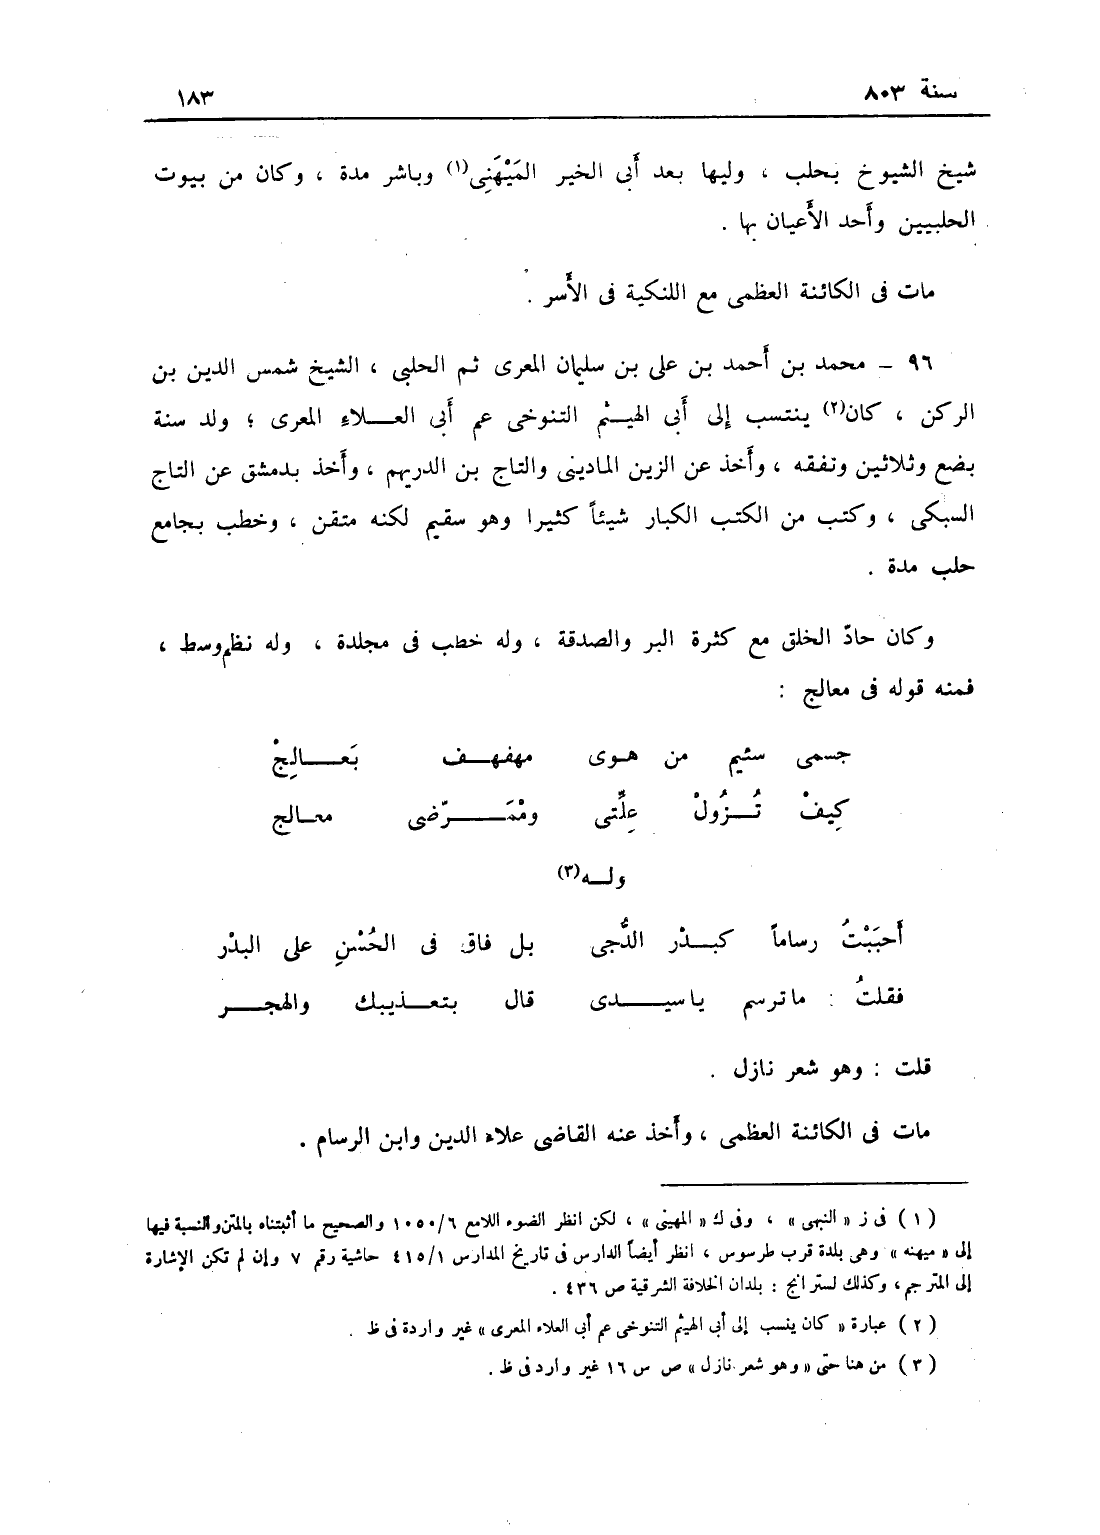 سنة ٨٠٣
١٨٣
شيخ الشيوخ بحلب ، وليها بعد أَبى الخير المَيْهَنِى(١) وباشر مدة ، وكان من بيوت
الحلبيين وأَحد الأَعيان بها .
مات فى الكائنة العظمى مع اللنكية فى الأَسر .
٩٦ – محمد بن أَحمد بن على بن سليمان المعرى ثم الحلبى ، الشيخ شمس الدين بن
الركن ، كان(٢) ينتسب إلى أَبى الهيثم التنوخى عم أَبى العلاء المعرى ؛ ولد سنة
بضع وثلاثين وتفقه ، وأَخذ عن الزين الماديني والتاج بن الدريهم ، وأَخذ بدمشق عن التاج
السبكى ، وكتب من الكتب الكبار شيئاً كثيرا وهو سقيم لكنه متقن ، وخطب بجامع
حلب مدة .
وكان حادّ الخلق مع كثرة البر والصدقة ، وله خطب فى مجلدة ، وله نظم وسط ،
فمنه قوله فى معالج :
جسمى سئيم من هوى مهفهف بَعَالِجْ
كِيفْ تُزُولْ عِلَّتى ومُمَرّضى معالج
وله(٣)
أَحبَبْتُ رساماً كبدْر الدُّجى بل فاق فى الحُسْنِ على البدْر
فقلتُ : ما ترسم يا سيدى قال بتعذيبك والهجر
قلت : وهو شعر نازل .
مات فى الكائنة العظمى ، وأَخذ عنه القاضى علاء الدين وابن الرسام .
(١) فى ز « النبهى » ، وفى ك « المهينى » ، لكن انظر الضوء اللامع ١٠٥٠/٦ والصحيح ما أثبتناه بالمتن والنسبة فيها
إلى « ميهنه » وهى بلدة قرب طرسوس ، انظر أيضاً الدارس فى تاريخ المدارس ٤١٥/١ حاشية رقم ٧ وإن لم تكن الإشارة
إلى المترجم ، وكذلك لسترانج : بلدان الخلافة الشرقية ص ٤٣٦ .
(٢) عبارة « كان ينسب إلى أبى الهيثم التنوخى عم أبى العلاء المعرى » غير واردة فى ظ .
(٣) من هنا حتى « وهو شعر نازل » ص س ١٦ غير وارد فى ظ .